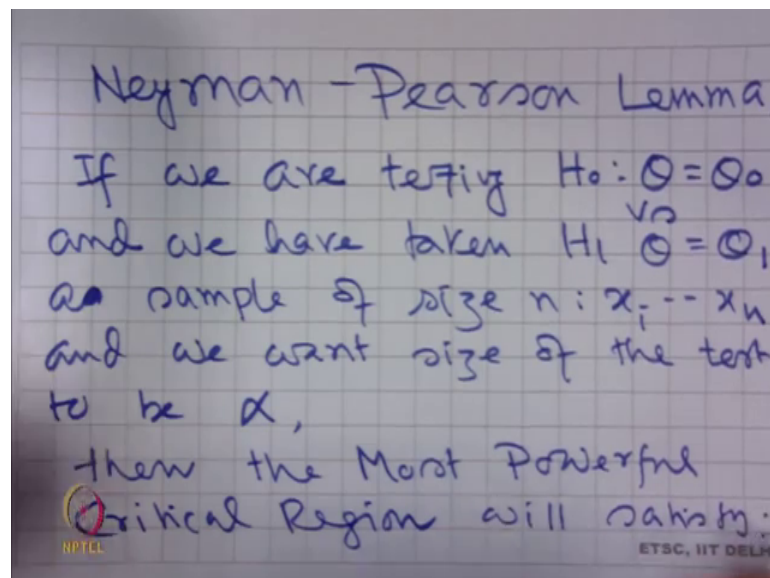 Neyman - Pearson Lemma
If we are testing H₀ : θ = θ₀
vs
and we have taken H₁ θ = θ₁
a sample of size n : x₁ --- xₙ
and we want size of the test
to be α,
then the Most Powerful
Critical Region will satisfy :
NPTEL
ETSC, IIT DELH